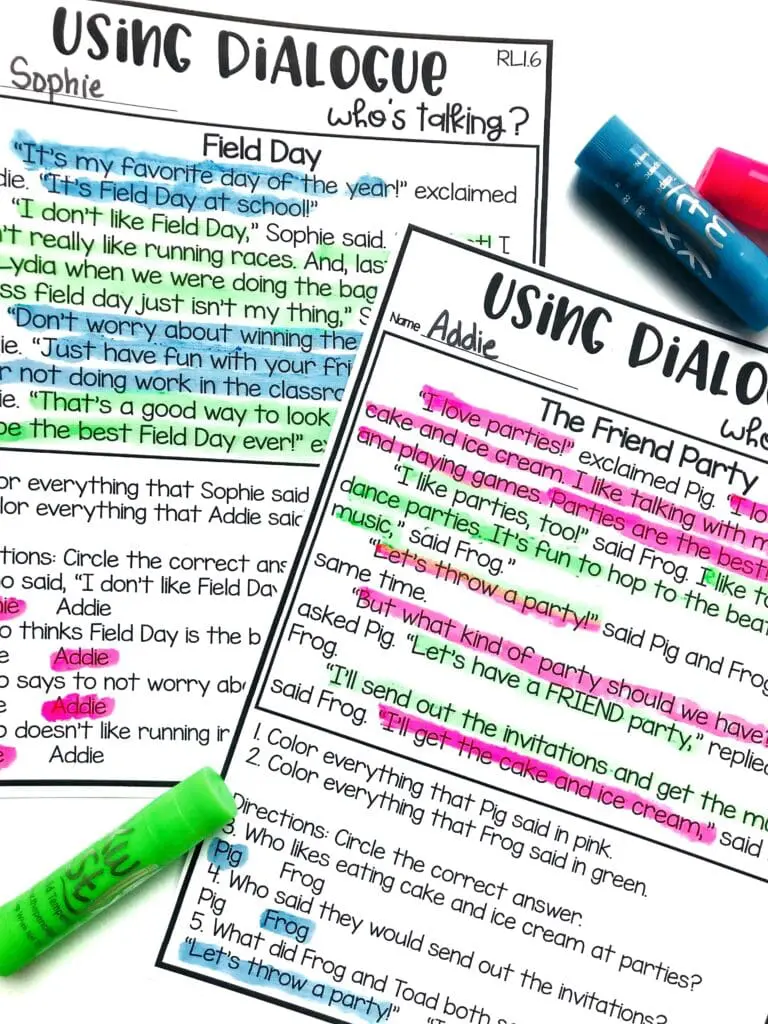 USING DIALOGUE
RL1.6
Sophie
who's talking?
Field Day
"It's my favorite day of the year!" exclaimed
die. "It's Field Day at school!"
"I don't like Field Day," Sophie said.
I
n't really like running races. And, las
Lydia when we were doing the bag
ss field day just isn't my thing," S
"Don't worry about winning the
ie. "Just have fun with your fri
r not doing work in the classro
ie. "That's a good way to look
be the best Field Day ever!" ex
or everything that Sophie said
lor everything that Addie said
tions: Circle the correct ans
o said, "I don't like Field Da
ie Addie
o thinks Field Day is the b
e Addie
o says to not worry abo
e Addie
o doesn't like running in
e Addie
USING DIALO
Name Addie
who
The Friend Party
"I love parties!" exclaimed Pig. "I lo
cake and ice cream. I like talking with m
and playing games. Parties are the best!
"I like parties, too!" said Frog. I like to
dance parties. It's fun to hop to the beat
music," said Frog."
"Let's throw a party!" said Pig and Frog
same time.
"But what kind of party should we have?
asked Pig. "Let's have a FRIEND party," replied
Frog.
"I'll send out the invitations and get the mu
said Frog. "I'll get the cake and ice cream," said
1. Color everything that Pig said in pink.
2. Color everything that Frog said in green.
Directions: Circle the correct answer.
3. Who likes eating cake and ice cream at parties?
Pig Frog
4. Who said they would send out the invitations?
Pig Frog
5. What did Frog and Toad both s
"Let's throw a party!" "I